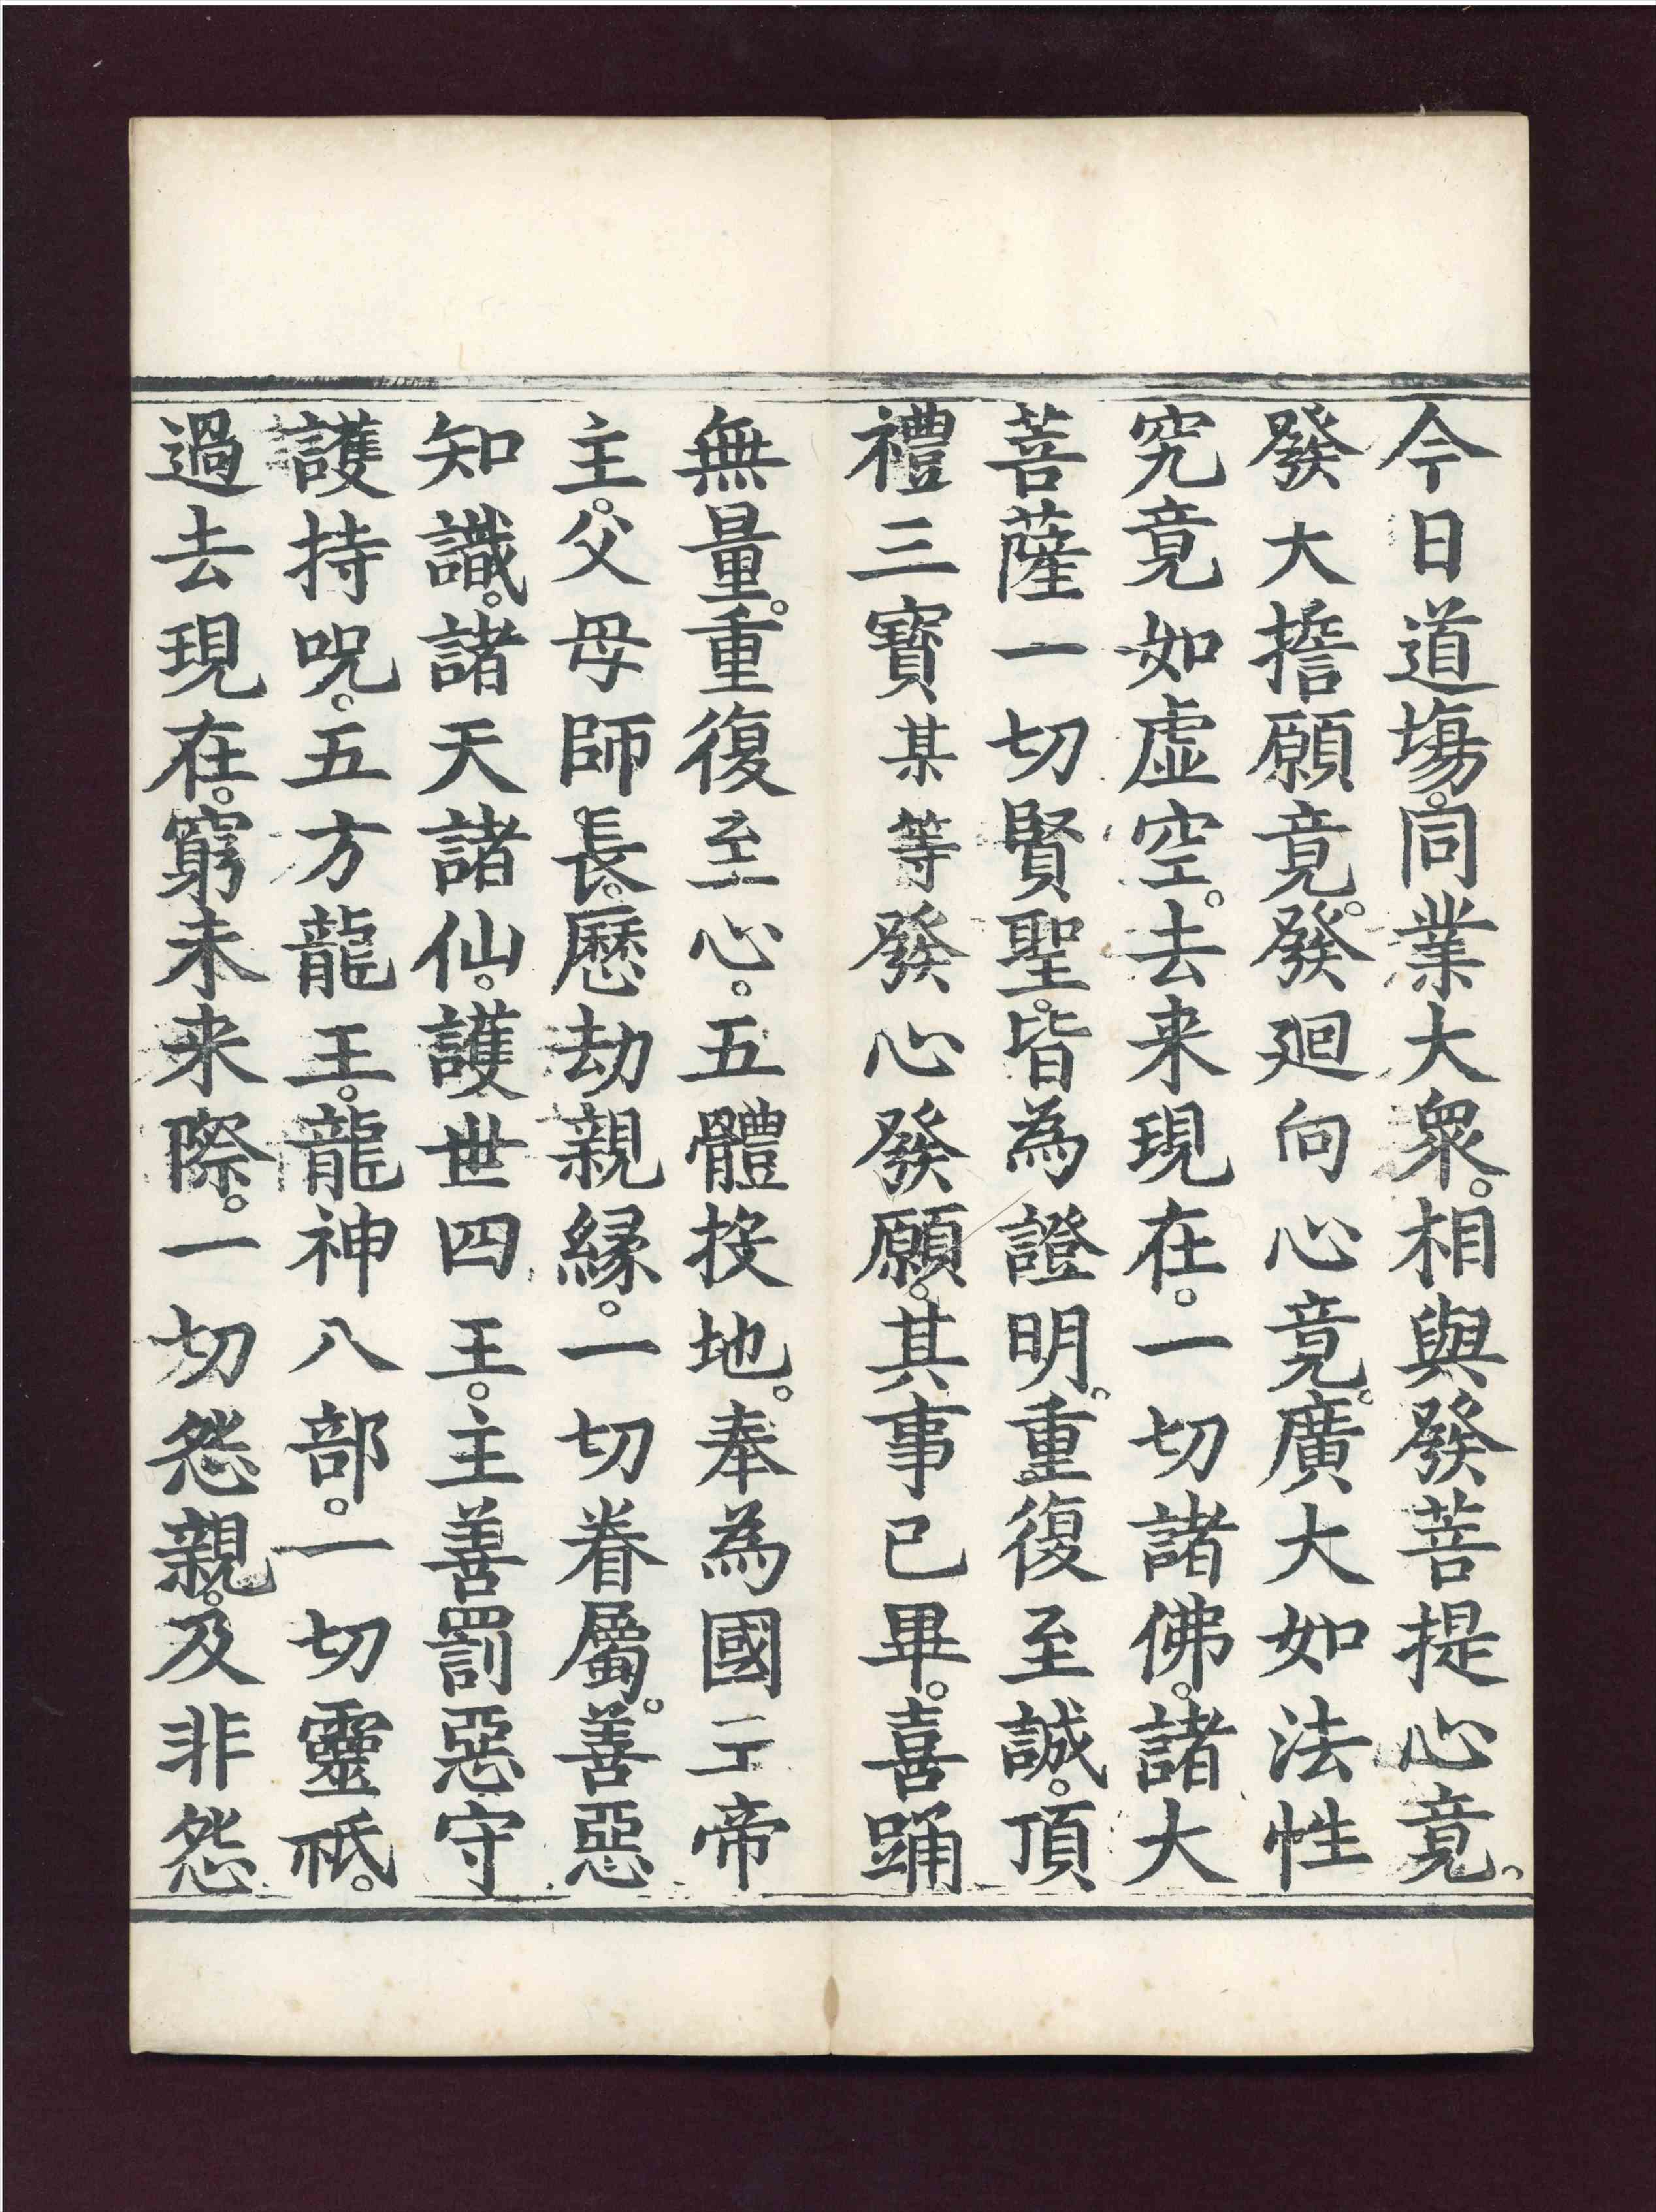 今日道場。同業大衆。相與發菩提心竟。
發大擔願竟。發廻向心竟。廣大如法性
究竟如虛空。去来現在。一切諸佛。諸大
菩薩一切賢聖。皆為證明。重復至誠。頂
禮三寶某等發心發願。其事已畢。喜踊
無量。重復至心。五體投地。奉為國王帝
主。父母師長。歷劫親緣。一切眷屬。善惡
知識。諸天諸仙。護世四王。主善罰惡守
護持呪。五方龍王。龍神八部。一切靈祇。
過去現在。窮未来際。一切怨親。及非怨